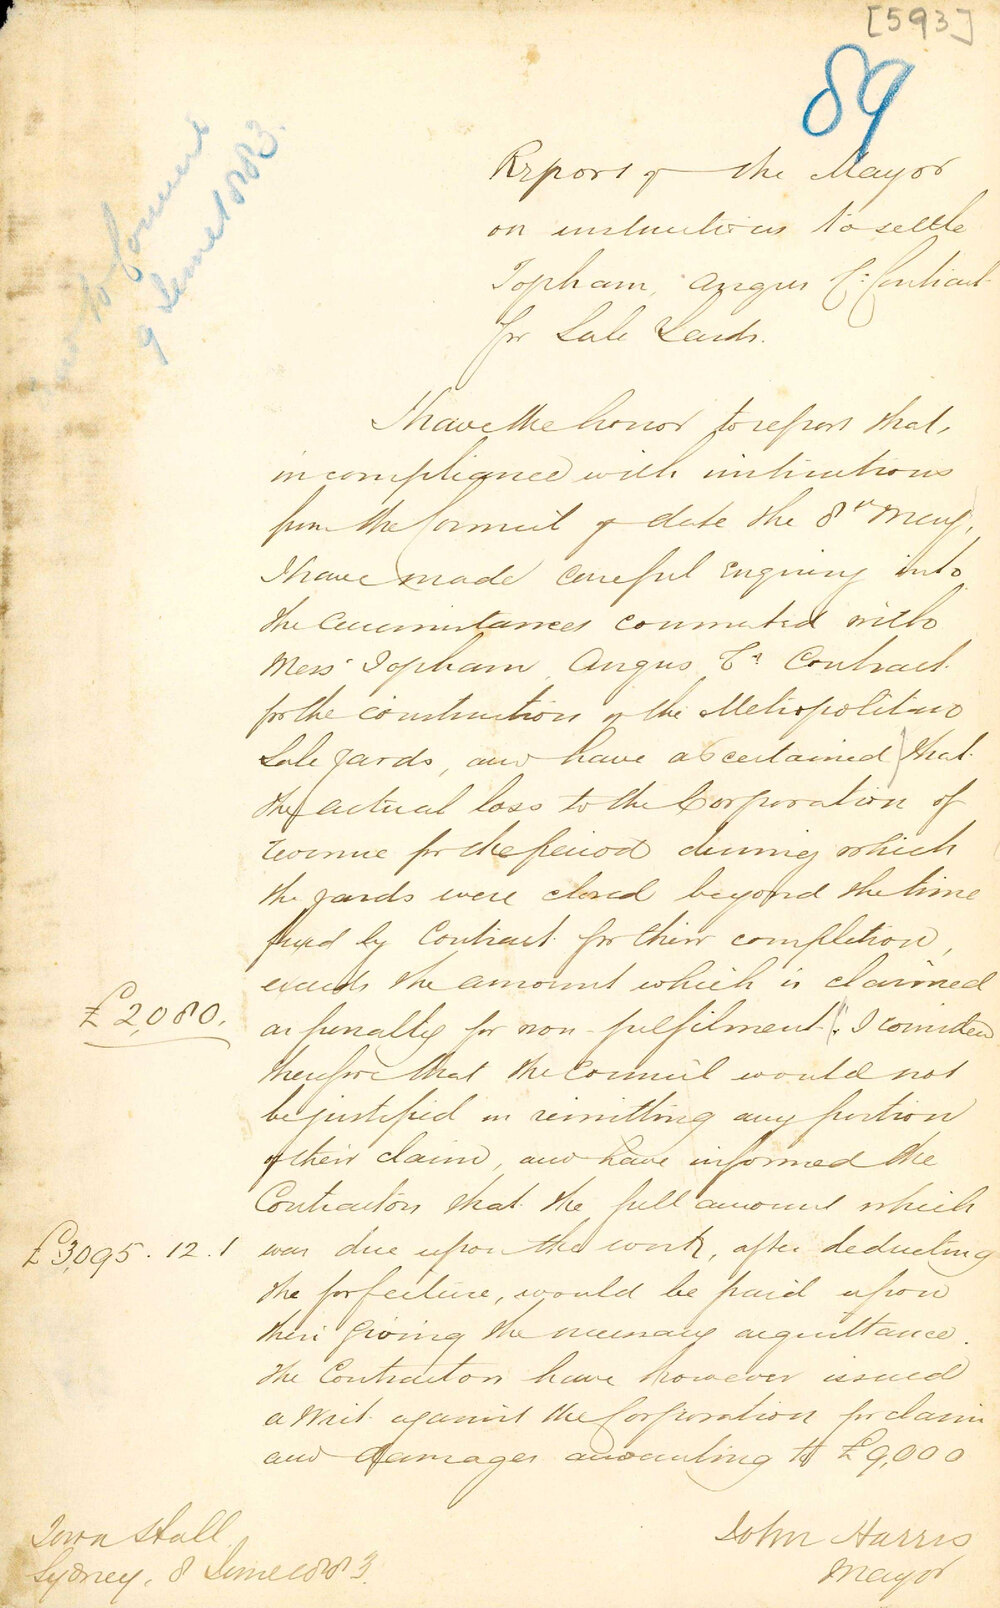 [593]
89
to Council
9 June 1883.
Report of the Mayor
on instructions to settle
Topham, Angus Co: Contract
for Sale Yards.
I have the honor to report that,
in compliance with instructions
from the Council of date the 8th May,
I have made careful enquiry into
the circumstances connected with
Messrs Topham, Angus, Co Contract
for the construction of the Metropolitan
Sale yards, and have ascertained that
the actual loss to the Corporation of
revenue for the period during which
the yards were closed beyond the time
fixed by Contract for their completion,
exceeds the amount which is claimed
£2,080.
as penalty for non-fulfilment. I consider
therefore that the Council would not
be justified in remitting any portion
of their claim, and have informed the
Contractors that the full amount which
£3,095.12.1
was due upon the work, after deducting
the forfeiture, would be paid upon
their giving the necessary acquittance.
The Contractors have however issued
a Writ against the Corporation for claim
and damages amounting to £9,000
John Harris
Mayor
Town Hall
Sydney, 8 June 1883.